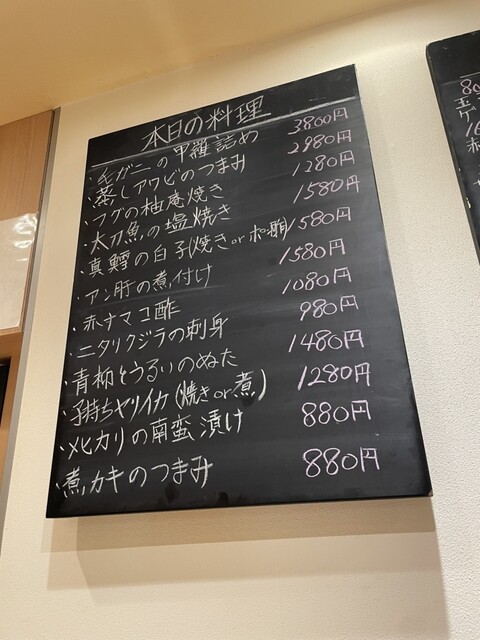 本日の料理
・毛ガニの甲羅詰め 3800円
・蒸しアワビのつまみ 2980円
・フグの柚庵焼き 1280円
・太刀魚の塩焼き 1580円
・真鱈の白子(焼きorポン酢) 1580円
・アン肝の煮付け 1580円
・赤ナマコ酢 1080円
・ニタリクジラの刺身 980円
・青柳とうるいのぬた 1480円
・子持ちヤリイカ(焼きor煮) 1280円
・メヒカリの南蛮漬け 880円
・煮カキのつまみ 880円